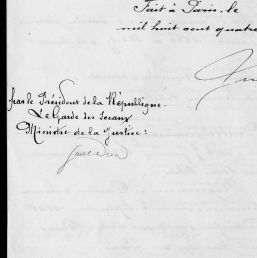 Fait à Paris, le
mil huit cent quatre
Par le Président de la République.
Le Garde des Sceaux
Ministre de la Justice: